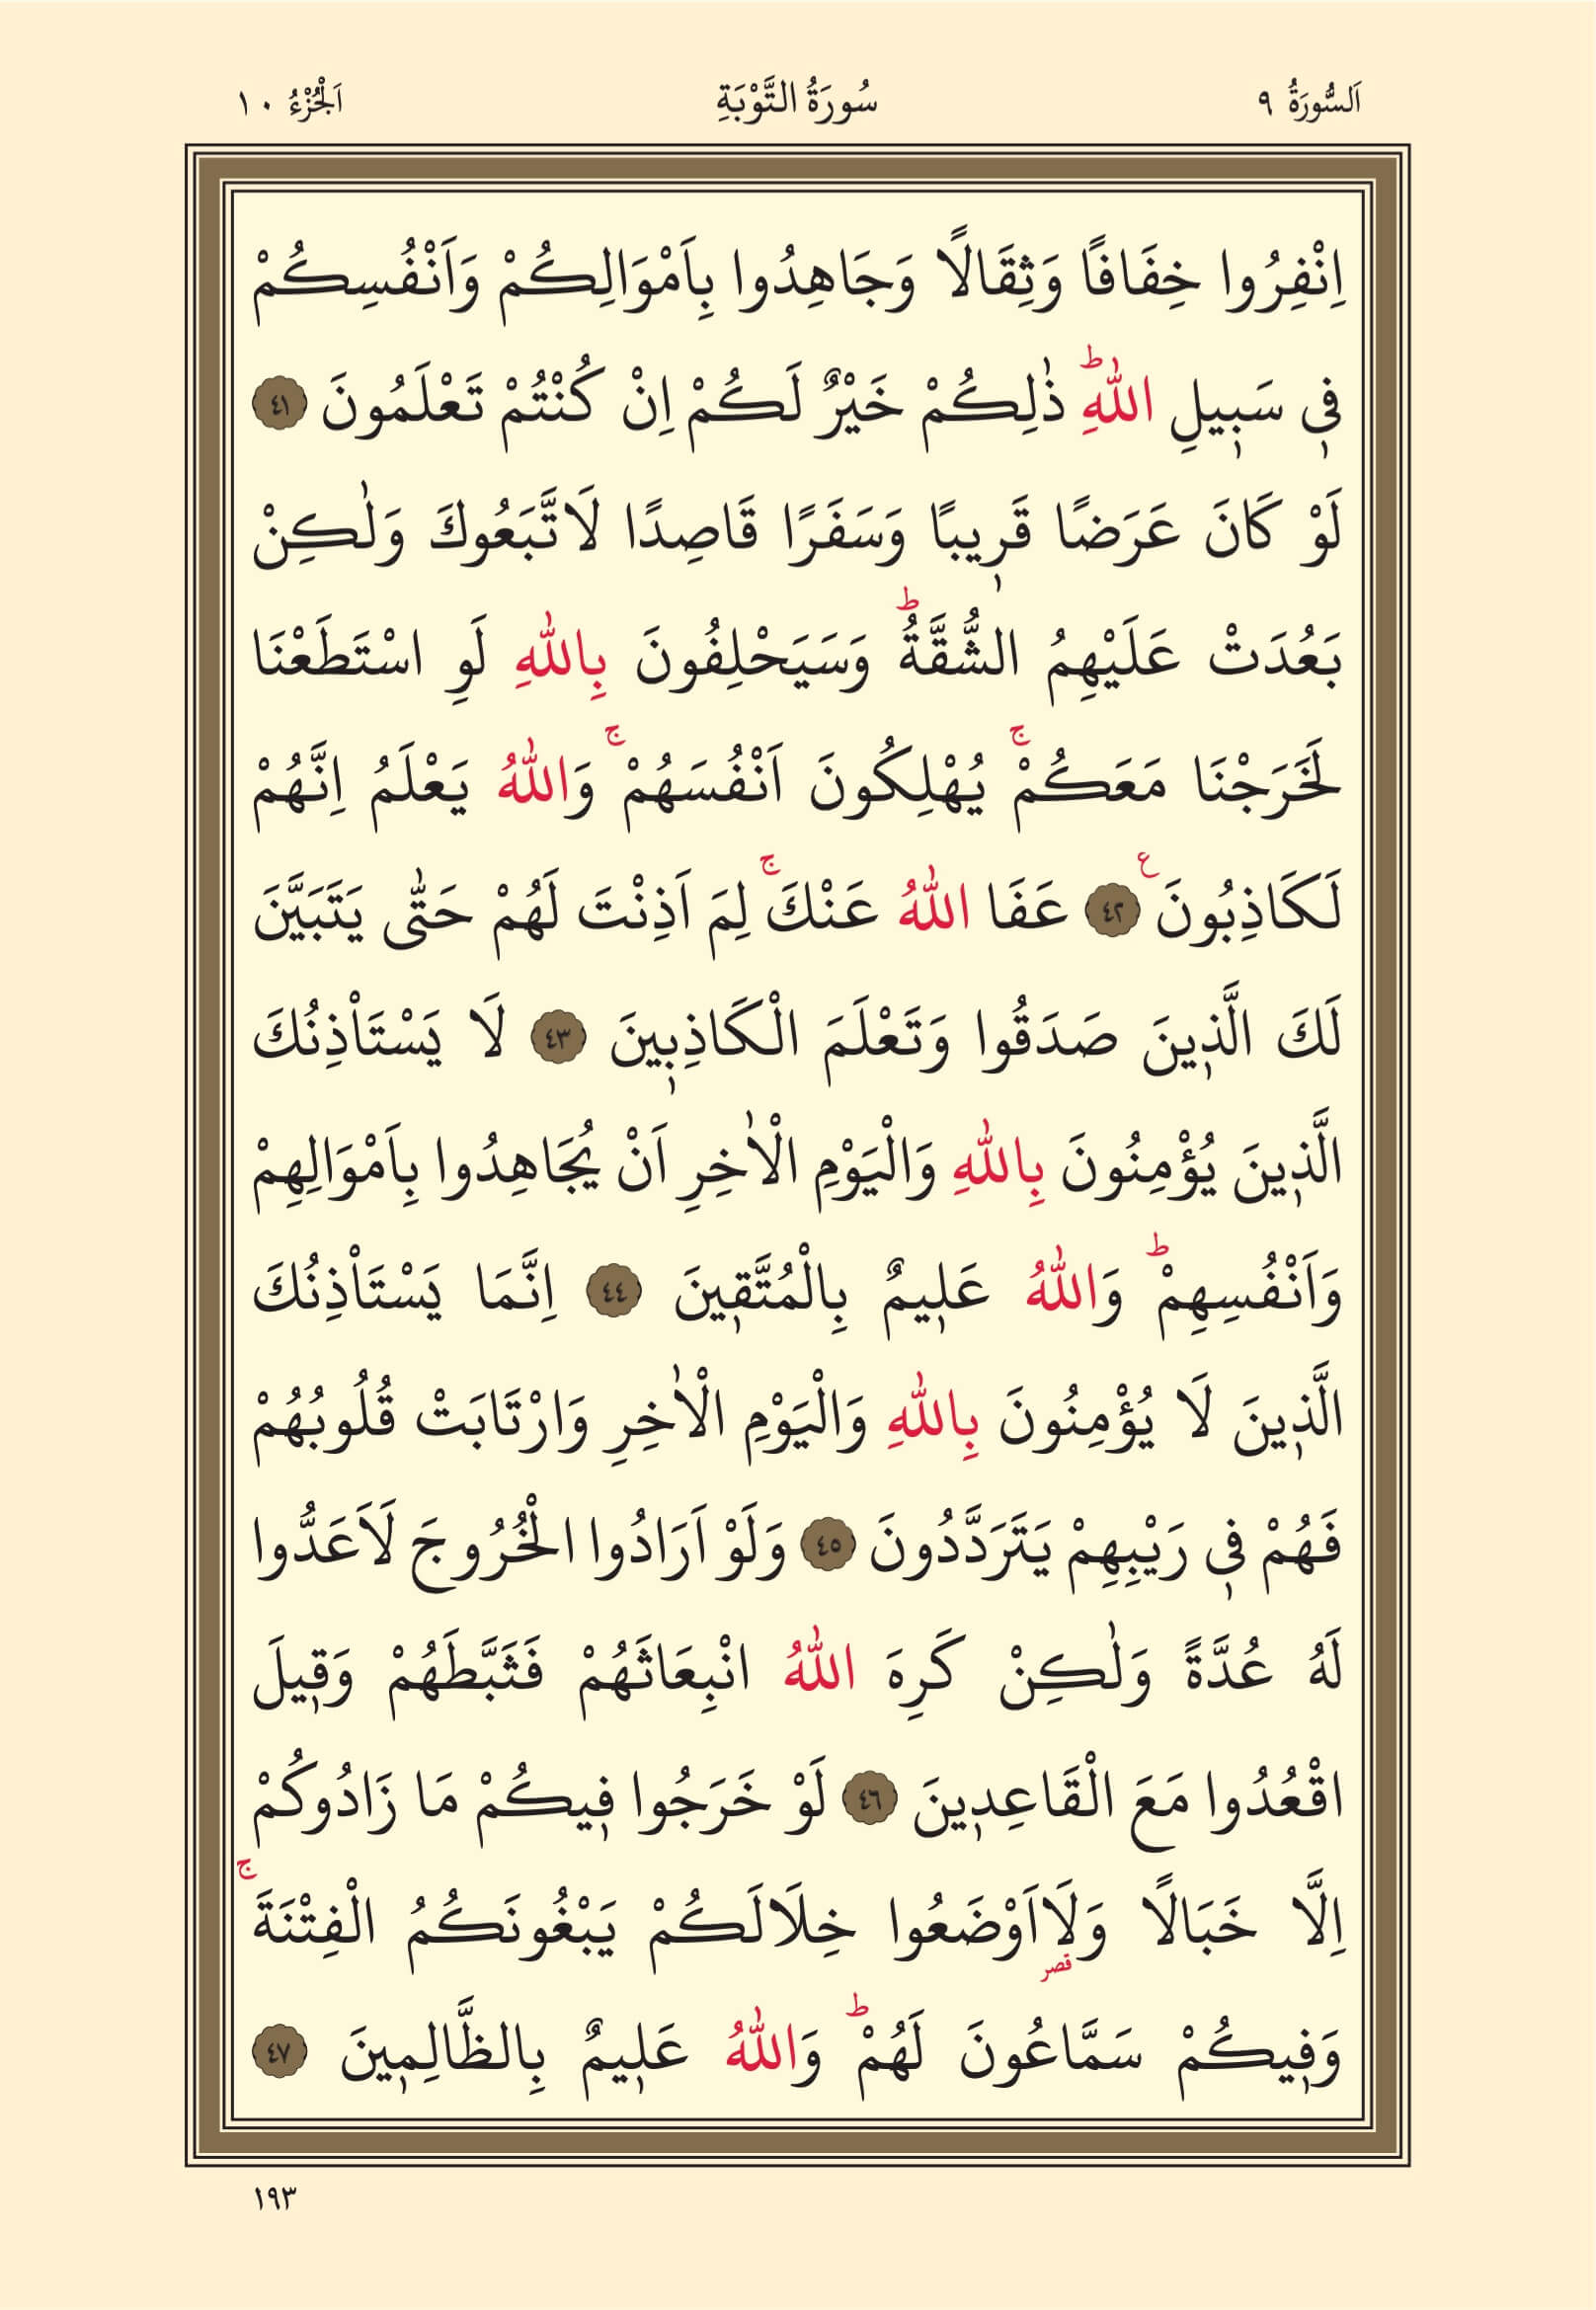 اَلسُّورَةُ ٩ سُورَةُ التَّوْبَةِ اَلْجُزْءُ ١٠
اِنْفِرُوا خِفَافًا وَثِقَالًا وَجَاهِدُوا بِاَمْوَالِكُمْ وَاَنْفُسِكُمْ
ف۪ي سَب۪يلِ اللّٰهِۜ ذٰلِكُمْ خَيْرٌ لَكُمْ اِنْ كُنْتُمْ تَعْلَمُونَ ﴿٤١﴾
لَوْ كَانَ عَرَضًا قَر۪يبًا وَسَفَرًا قَاصِدًا لَاتَّبَعُوكَ وَلٰكِنْ
بَعُدَتْ عَلَيْهِمُ الشُّقَّةُۜ وَسَيَحْلِفُونَ بِاللّٰهِ لَوِ اسْتَطَعْنَا
لَخَرَجْنَا مَعَكُمْۚ يُهْلِكُونَ اَنْفُسَهُمْۚ وَاللّٰهُ يَعْلَمُ اِنَّهُمْ
لَكَاذِبُونَ ع ﴿٤٢﴾ عَفَا اللّٰهُ عَنْكَۚ لِمَ اَذِنْتَ لَهُمْ حَتّٰى يَتَبَيَّنَ
لَكَ الَّذ۪ينَ صَدَقُوا وَتَعْلَمَ الْكَاذِب۪ينَ ﴿٤٣﴾ لَا يَسْتَاْذِنُكَ
الَّذ۪ينَ يُؤْمِنُونَ بِاللّٰهِ وَالْيَوْمِ الْاٰخِرِ اَنْ يُجَاهِدُوا بِاَمْوَالِهِمْ
وَاَنْفُسِهِمْۜ وَاللّٰهُ عَل۪يمٌ بِالْمُتَّق۪ينَ ﴿٤٤﴾ اِنَّمَا يَسْتَاْذِنُكَ
الَّذ۪ينَ لَا يُؤْمِنُونَ بِاللّٰهِ وَالْيَوْمِ الْاٰخِرِ وَارْتَابَتْ قُلُوبُهُمْ
فَهُمْ ف۪ي رَيْبِهِمْ يَتَرَدَّدُونَ ﴿٤٥﴾ وَلَوْ اَرَادُوا الْخُرُوجَ لَاَعَدُّوا
لَهُ عُدَّةً وَلٰكِنْ كَرِهَ اللّٰهُ انْبِعَاثَهُمْ فَثَبَّطَهُمْ وَق۪يلَ
اقْعُدُوا مَعَ الْقَاعِد۪ينَ ﴿٤٦﴾ لَوْ خَرَجُوا ف۪يكُمْ مَا زَادُوكُمْ
اِلَّا خَبَالًا وَلَااَوْضَعُوا خِلَالَكُمْ يَبْغُونَكُمُ الْفِتْنَةَۚ
قصر
وَف۪يكُمْ سَمَّاعُونَ لَهُمْۜ وَاللّٰهُ عَل۪يمٌ بِالظَّالِم۪ينَ ﴿٤٧﴾
١٩٣